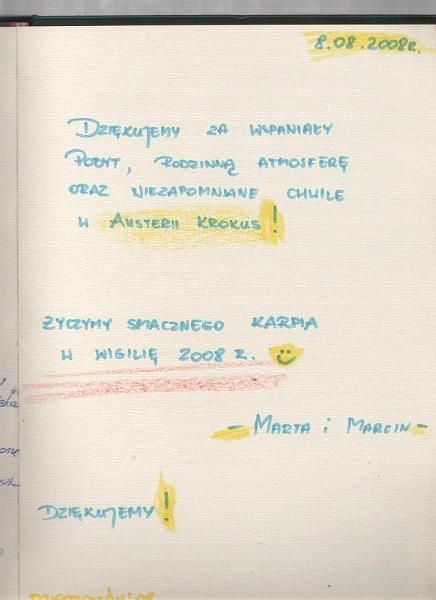 8.08.2008r.
DZIĘKUJEMY ZA WSPANIAŁY
POBYT, RODZINNĄ ATMOSFERĘ
ORAZ NIEZAPOMNIANE CHWILE
W AUSTERII KROKUS!
ŻYCZYMY SMACZNEGO KARPIA
W WIGILIĘ 2008 R.
- MARTA i MARCIN -
DZIĘKUJEMY!